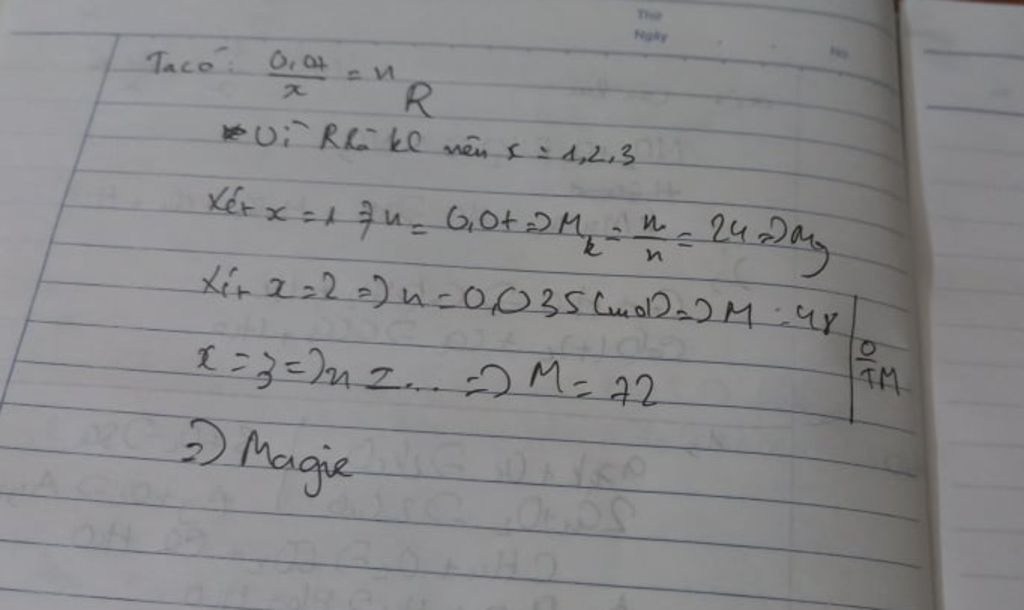 Thứ
Ngày
No
Ta có: 0,07/x = n R
Vì R là kl nên x = 1,2,3
Xét x = 1 => n = 0,07 => M R = m/n = 24 => Mg
Xét x = 2 => n = 0,035 (mol) => M = 48
x = 3 => n = ... => M = 72
0
TM
=> Magie